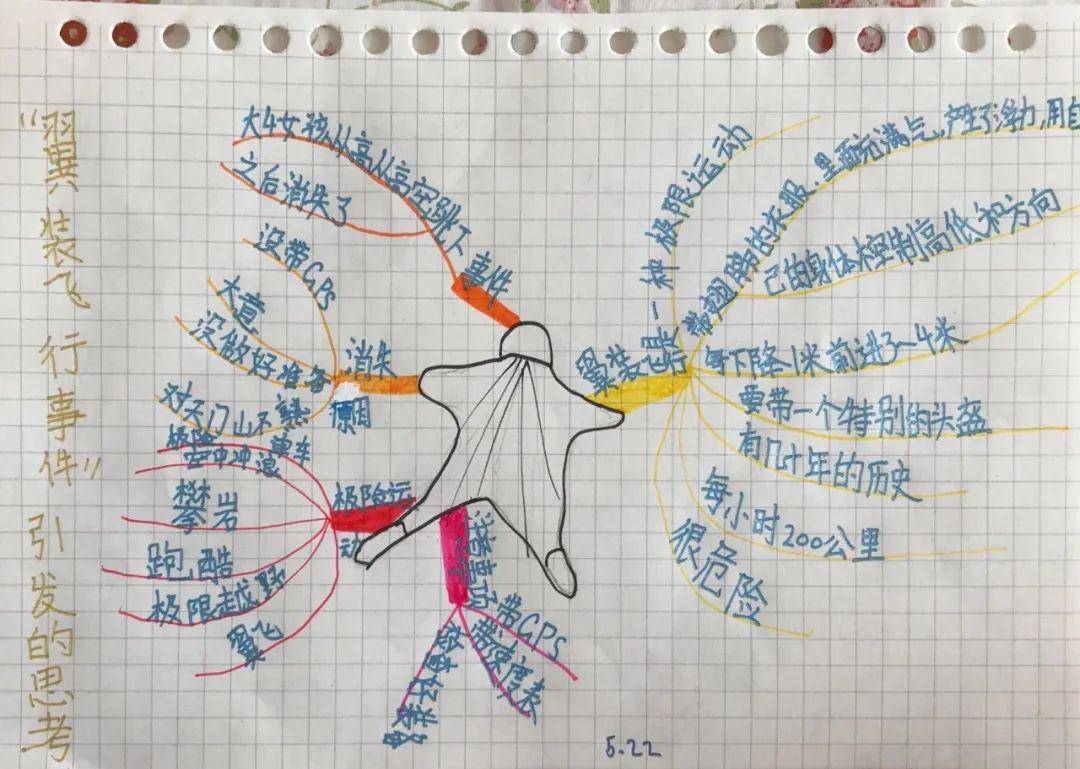 "翼装飞行事件"引发的思考
事件
大4女孩从高从高空跳下
之后消失了
消失
原因
没带GPS
大意
没做好准备
对天门山不熟
极限运
动
极限单车
空中冲浪
攀岩
跑酷
极限越野
翼飞
注意事项
检查好装备
带速度表
带GPS
翼装飞行
是一种极限运动
带翅膀的衣服、里面充满气、产生了浮力,用自
己的身体控制高低和方向
每下降1米前进3~4米
要带一个特别的头盔
有几十年的历史
每小时200公里
很危险
5.22